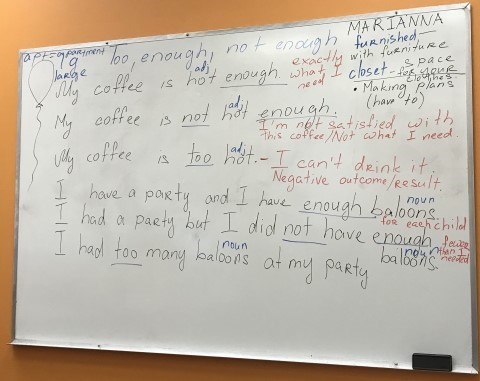 MARIANNA
apt = apartment
large
Too, enough, not enough
furnished –
with furniture
closet – space
for your
clothes
• Making plans
(have to)
adj
My coffee is hot enough.
exactly
what I
need
adj
My coffee is not hot enough.
I'm not satisfied with
this coffee/Not what I need.
adj
My coffee is too hot. – I can't drink it.
Negative outcome/result.
noun
I have a party and I have enough baloons.
for each child
I had a party but I did not have enough
noun
baloons.
fewer
than I
needed
noun
I had too many baloons at my party